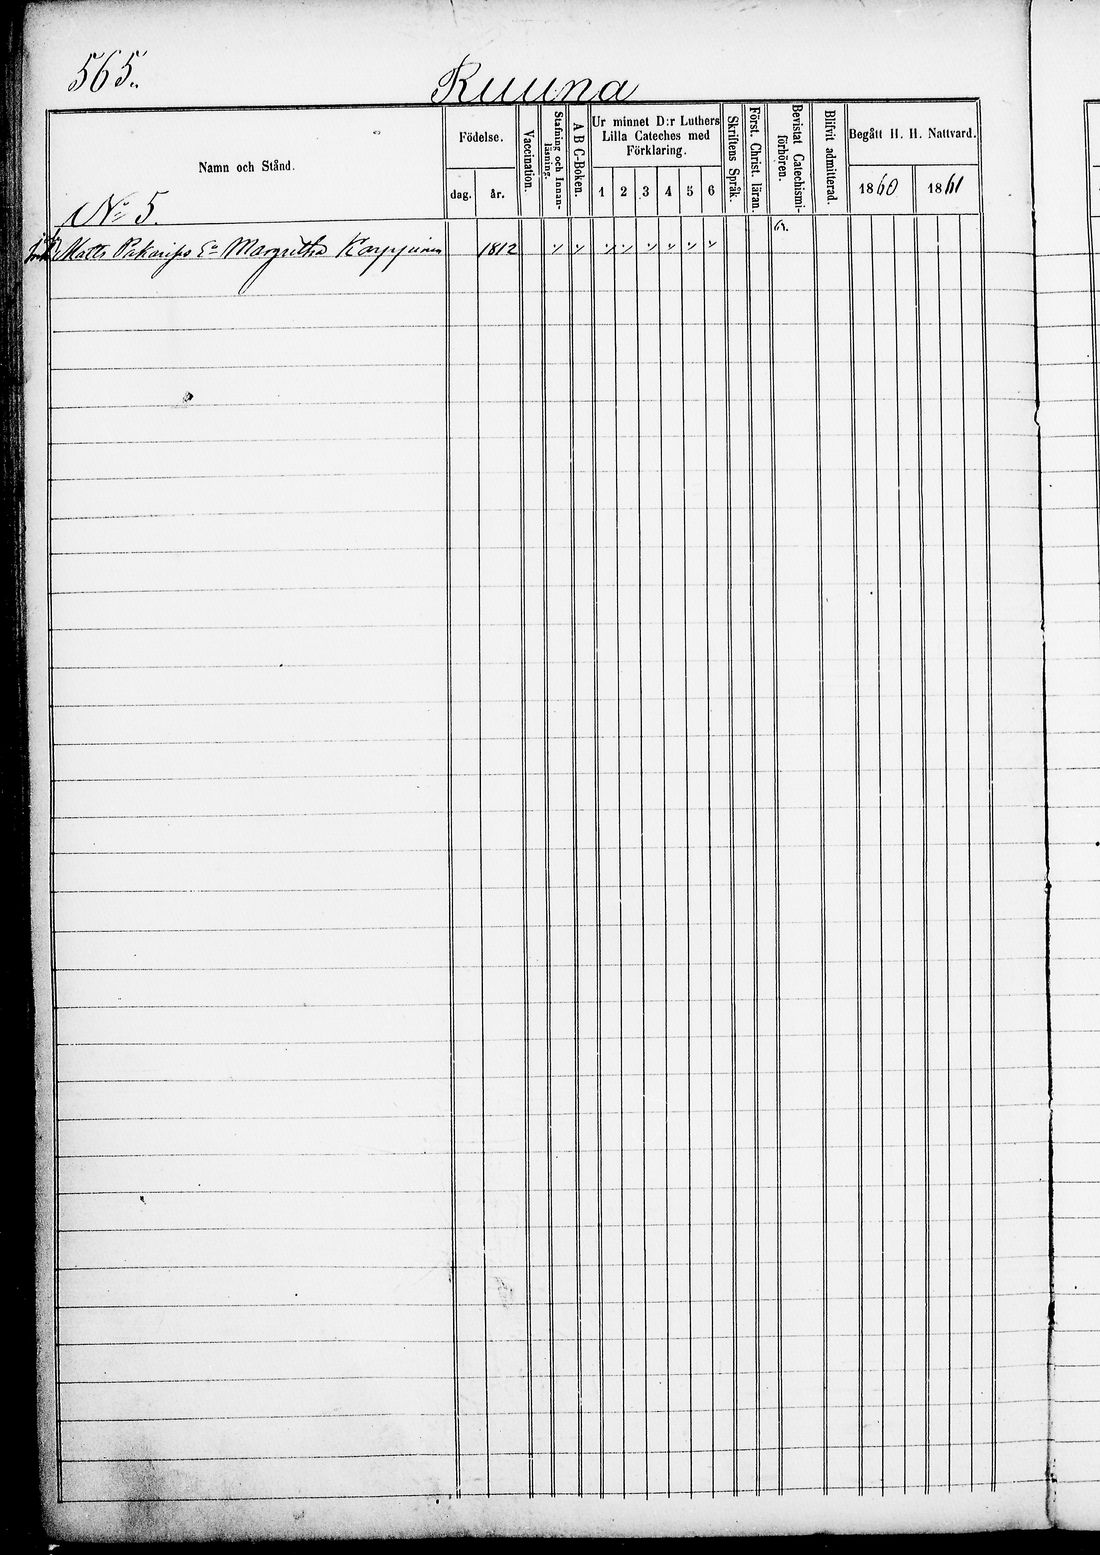 565.
Ruuna
Namn och Stånd.
Födelse.
dag.
år.
Vaccination.
Stafning och Innan-
läsning.
A B C-Boken.
Ur minnet D:r Luthers
Lilla Cateches med
Förklaring.
1 2 3 4 5 6
Skriftens Språk.
Först. Christ. läran.
Bevistat Catechismi-
förhören.
Blifvit admitterad.
Begått H. H. Nattvard.
1860
1861
No 5.
Matts Pekariss Ea Margretha Karppinen 1812